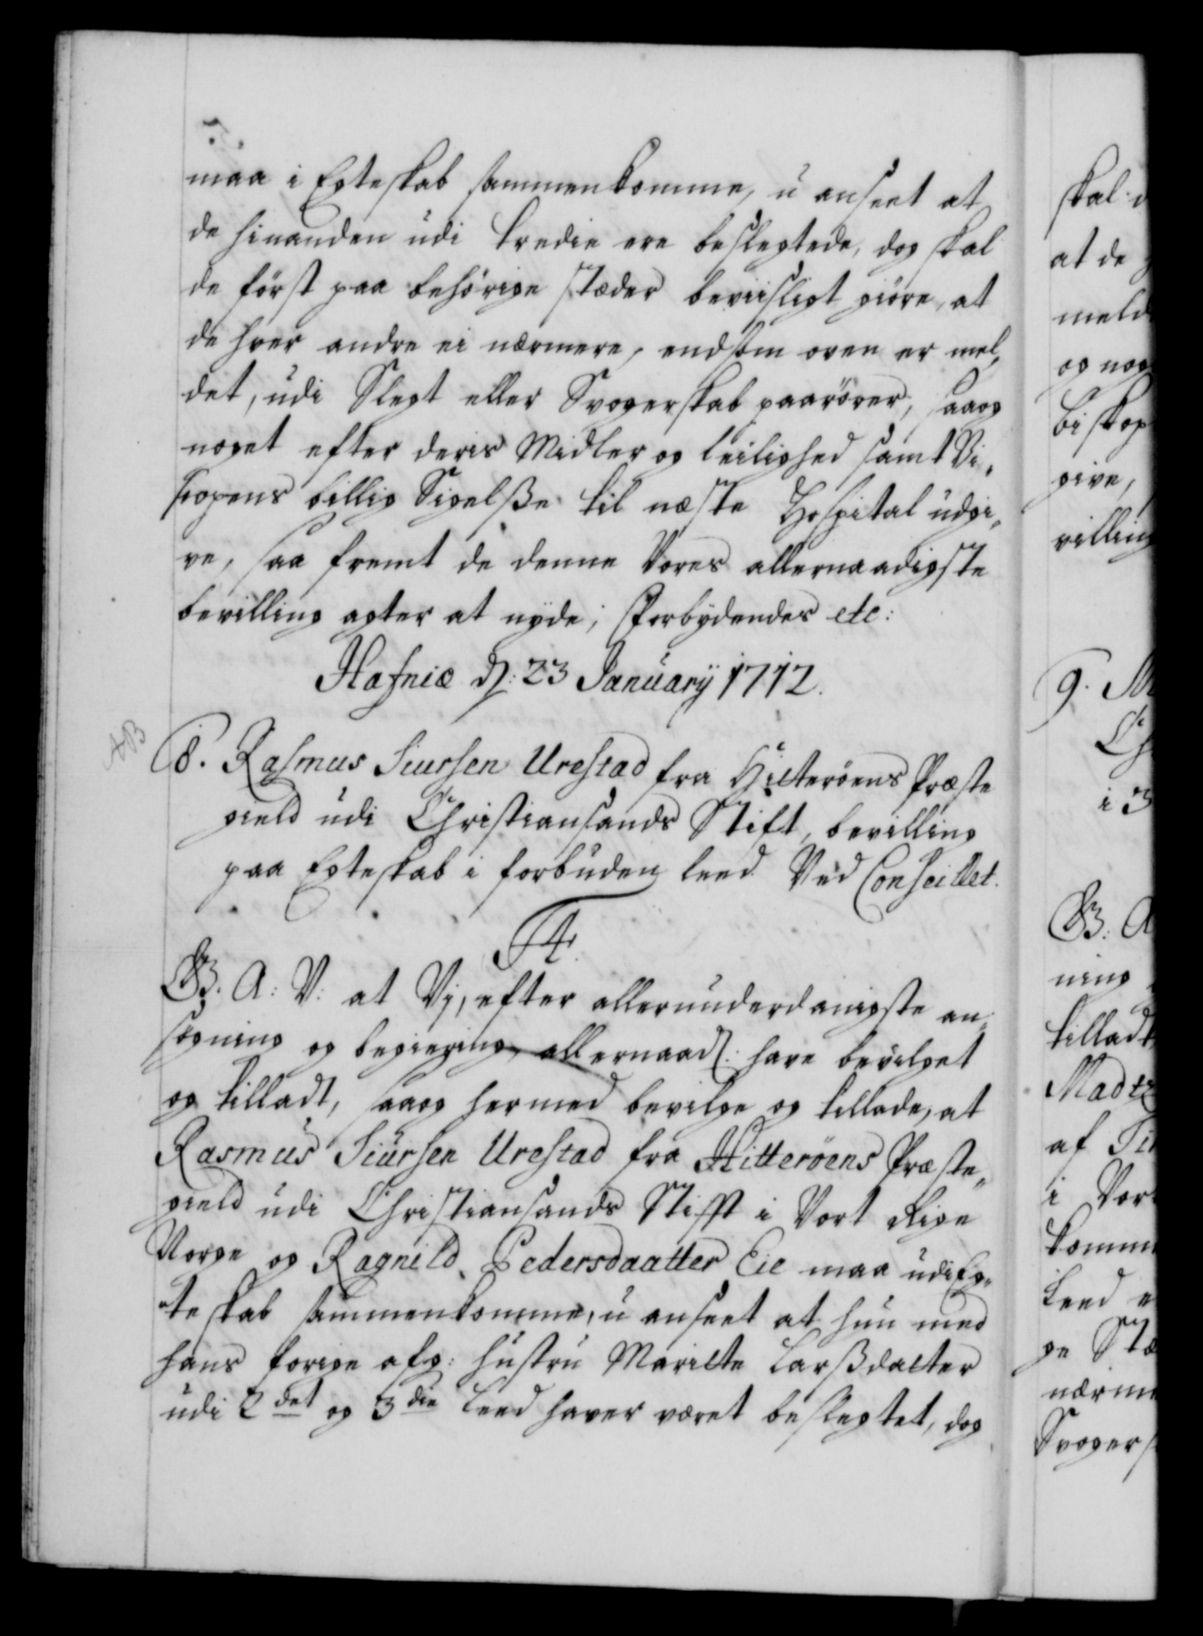 maa i Egteskab sammenkomme, u anseet at
de hinanden udi tredie ere beslegtede, dog skal
de først paa behørige stæder beviisligt giøre, at
de hver andre ei nærmere, end som oven er mel,
det, udi Slegt eller Svogerskab paarører, saa og
noget efter deris Midler og leilighed samt Bi„
scopens billig Sigelsße til næste Hospital udgi„
ve, saa fremt de denne Vores allernaadigste
bevilling agter at nyde; Forbydendes etc:
Hafniæ d: 23 Januarÿ 1712.
8. Rasmus Siursen Urestad fra Hitterøens Præste
gield udi Christiansands Stift, bevilling
paa Egteskab i forbuden leed Ved Conseillet.
F4.
G. A: V: at Vj, efter allerunderdanigste an„
søgning og begiering, allernaad: have bevilget
og tilladt, saa og hermed bevilge og tillade, at
Rasmus Siursen Urestad fra Hitterøens Præste„
gield udi Christiansands Stifft i Vort Rige
Norge og Ragnild Pedersdaatter Eie maa udi Eg„
teskab sammenkomme, u anseet at hun med
hans forige afg: Hustru Maritte Larßdatter
udi 2det og 3die Leed haver været beslegtet, dog
skal
at de
meld
og nog
biskop
give,
villing
9. M
Ch
i 3
G: A
ning
tilladt
Madtz
af
i Vor
komm
Leed e
ge Stæ
nærm
Svogers